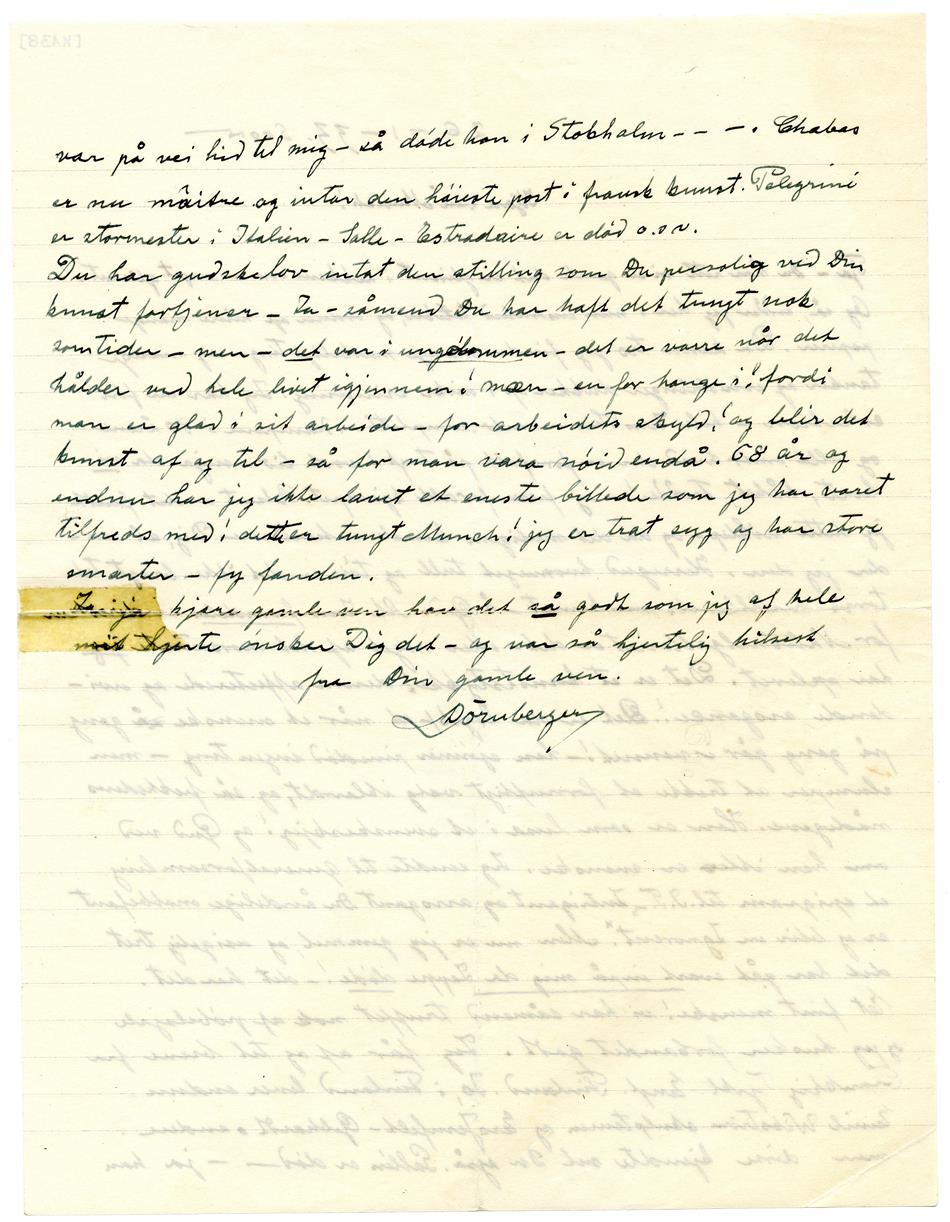 var på vei hid til mig – så døde han i Stokholm – – –. Chabas
er nu mâitre og intar den høieste post i fransk kunst. Pelegrini
er stormester i Italien – Salle – Estradaire er död o.s.v.
Du har gudskelov intat den stilling som Du personlig ved Din
kunst fortjener – Ja – såmend Du har haft det tungt nok
somtider – men – det var i ungdommen – det er værre når det
hålder ved hele livet igjennem! men – en får hange i! fordi
man er glad i sit arbeide – for arbeidets skyld! og blir det
kunst af og til – så får man være nöid endå. 68 år og
endnu har jeg ikke lavet et eneste billede som jeg har været
tilfreds med! dette er tungt Munch! jeg er træt syg og har store
smærter – fy fanden.
kjære gamle ven hav det så godt som jeg af hele
mit hjerte önsker Dig det – og vær så hjertelig hilset
fra Din gamle ven.
Dörnberger